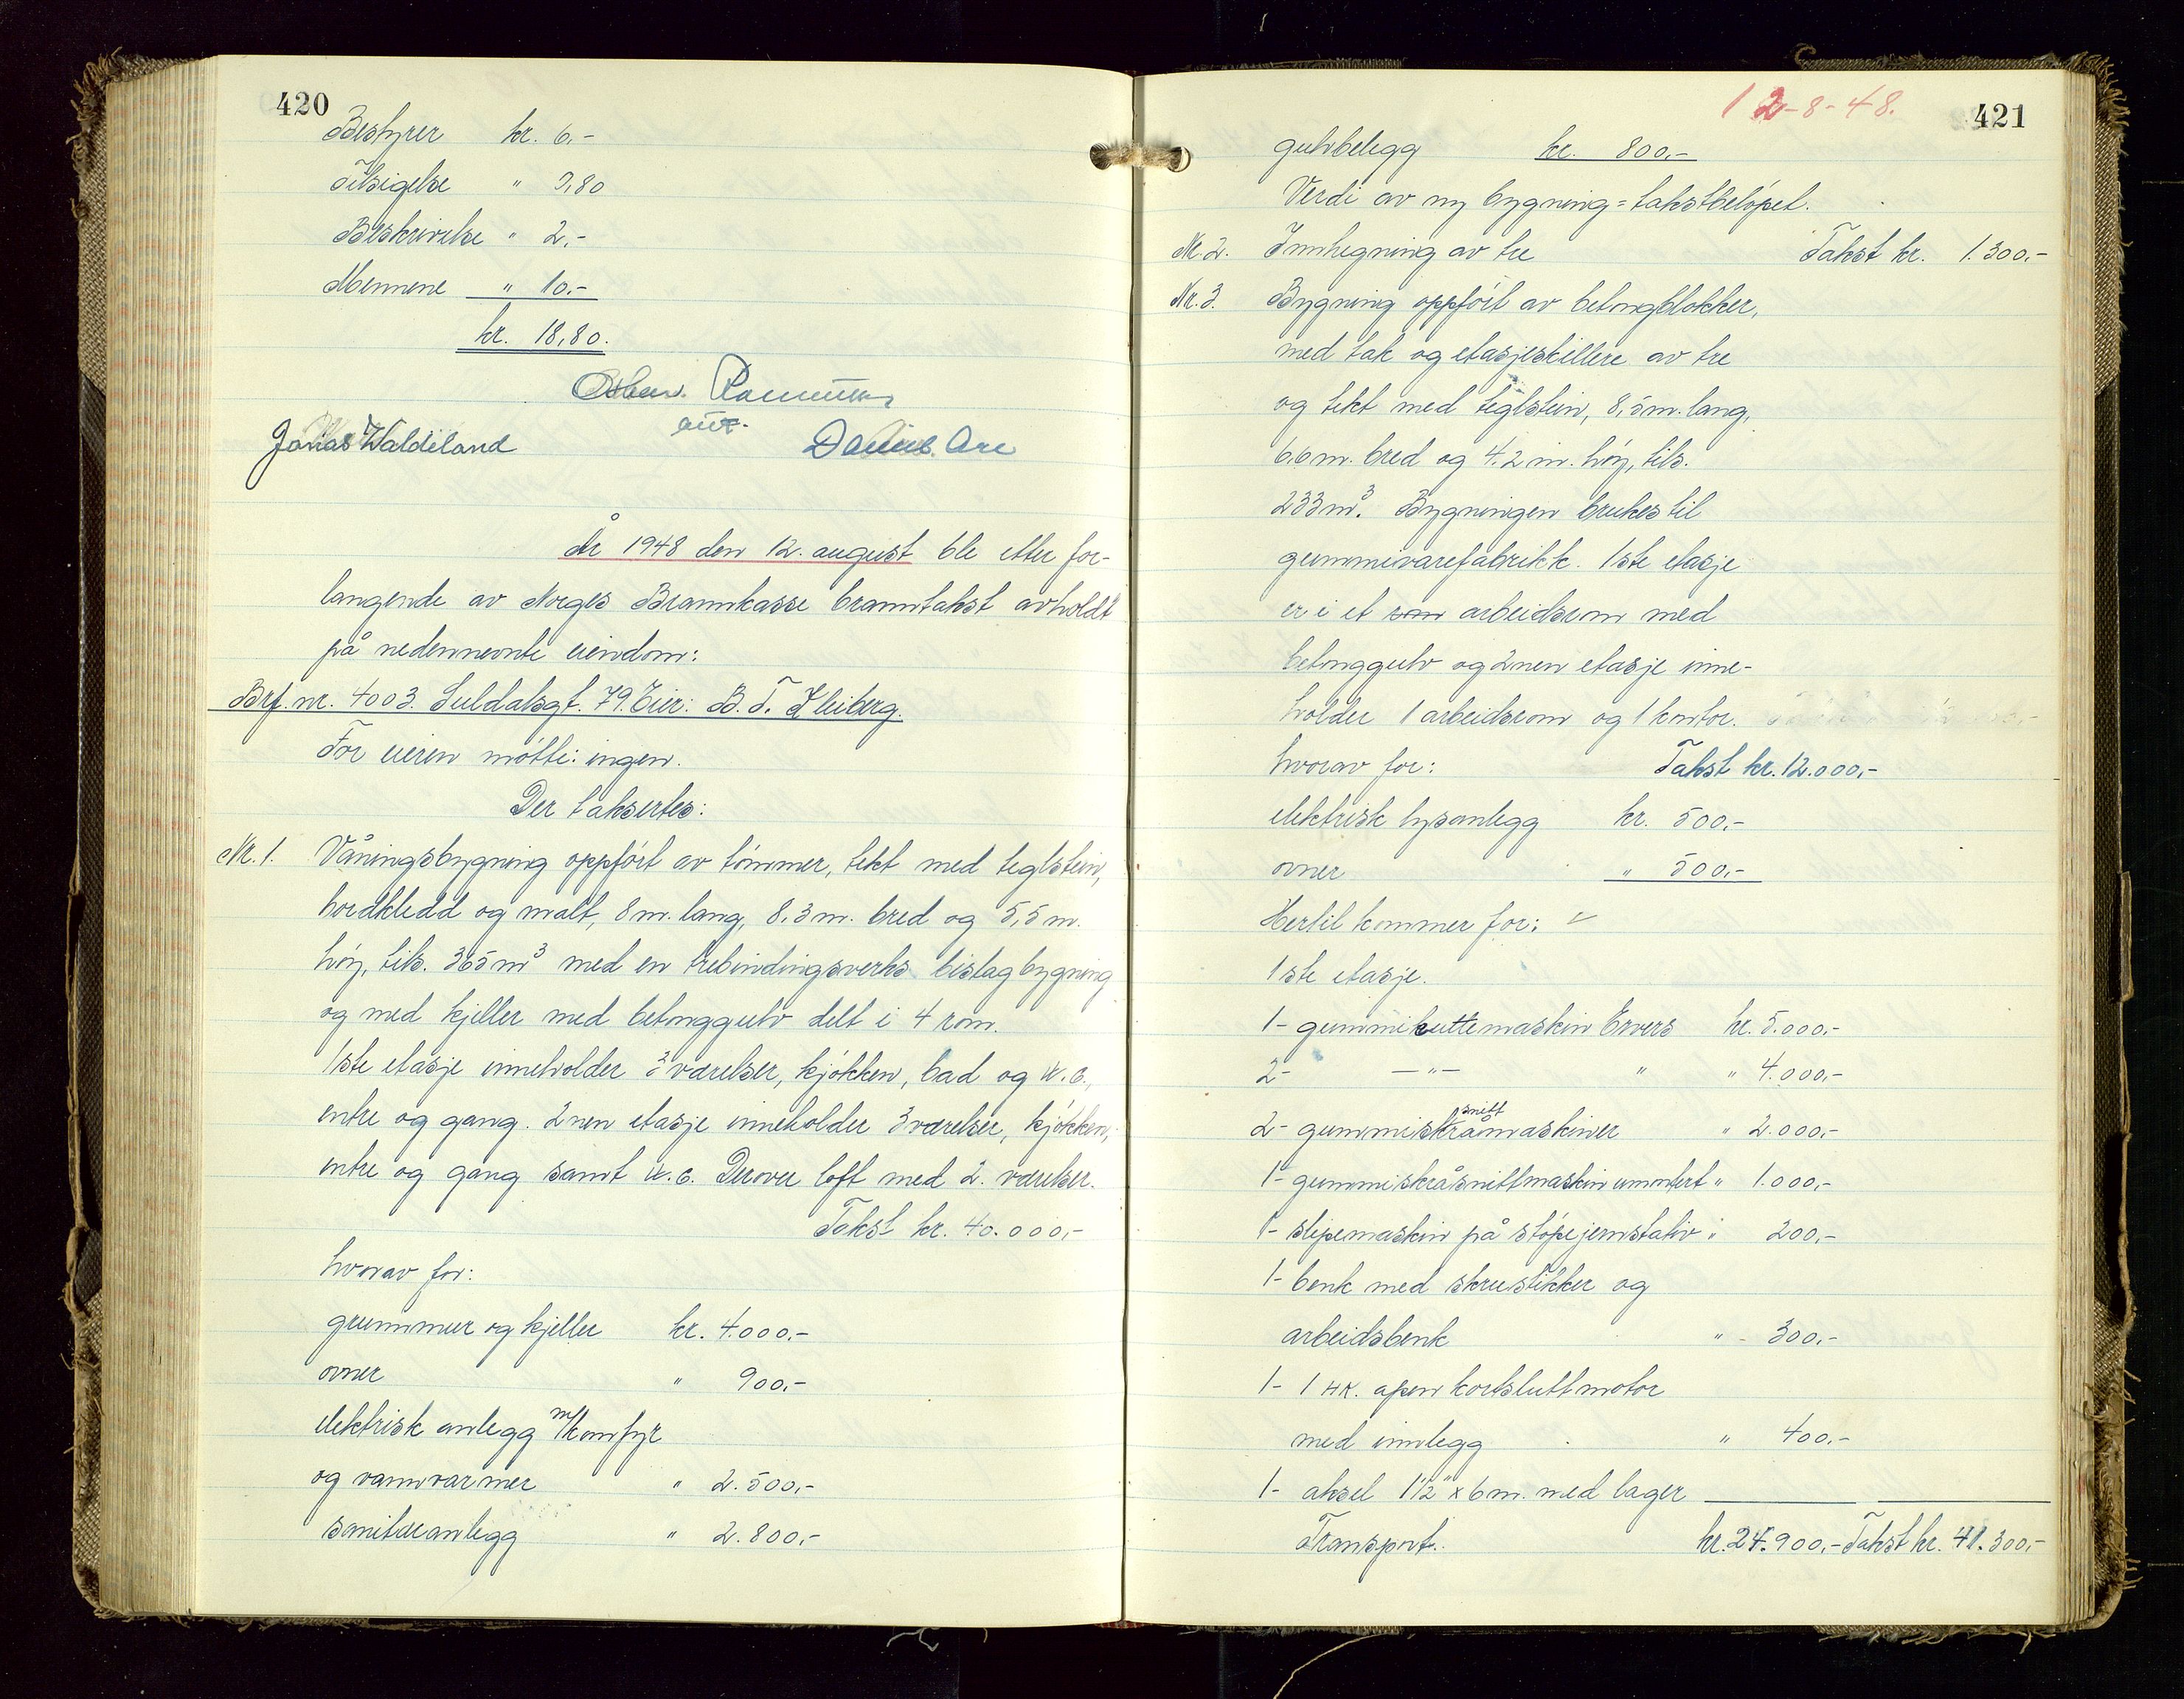 420
Bestyrer kr. 6,-
Tilsigelse " 0,80
Beskrivelse " 2,-
Mennene " 10,-
kr. 18,80.
Jonas Waldeland
År 1948 den 12. august ble etter for-
langende av Norges Brannkasse branntakst avholdt
på nedennevnte eiendom:
Brf. nr. 4003. Suldalsgt. 79. Eier: B. T. Kleiberg.
For eieren møtte: ingen.
Der taksertes:
Nr. 1. Våningsbygning oppført av tømmer, tekt med teglstein,
bordkledd og malt, 8 m. lang, 8,3 m. bred og 5,5 m.
høy, tils. 365 m³ med en trebindingsverks bislagbygning
og med kjeller med betonggulv delt i 4 rom.
1ste etasje inneholder 2 værelser, kjøkken, bad og w.c.,
entre og gang. 2nen etasje inneholder 3 værelser, kjøkken,
entre og gang samt w.c. Derover loft med 2. værelser.
Takst kr. 40.000,-
hvorav for:
grunnmur og kjeller kr. 4.000.-
ovner " 900,-
elektrisk anlegg m/komfyr
og vannvarmer " 2.500,-
sanitæranlegg " 2.800,-
12-8-48.
421
gulvbelegg kr. 800,-
Verdi av ny bygning = takstbeløpet.
Nr. 2. Innhegning av tre Takst kr. 1.300.-
Nr. 3. Bygning oppført av betongblokker,
med tak og etasjeskillere av tre
og tekt med teglstein, 8,5 m. lang,
6,6 m. bred og 4.2 m. høy, tils.
233 m³. Bygningen brukes til
gummivarefabrikk. 1ste etasje
er i et rom arbeidsrom med
betonggulv og 2nen etasje inne-
holder 1 arbeidsrom og 1 kontor.
hvorav for: Takst kr. 12.000,-
elektrisk lysanlegg kr. 500,-
ovner " 500,-
Hertil kommer for:
1ste etasje.
1- gummikuttemaskin Ervers kr. 5.000,-
2- -"- " " 4.000,-
2- gummiskråsnittmaskiner " 2.000,-
1- gummiskråsnittmaskin umontert " 1.000,-
1- slipemaskin på støpejernstativ " 200,-
1- benk med skrustikker og
arbeidsbenk " 300,-
1- 1 HK. åpen kortsluttmotor
med innlegg " 400,-
1- aksel 1 1/2" x 6 m. med lager
Transport. kr. 24.900,- Takst kr. 41.300,-